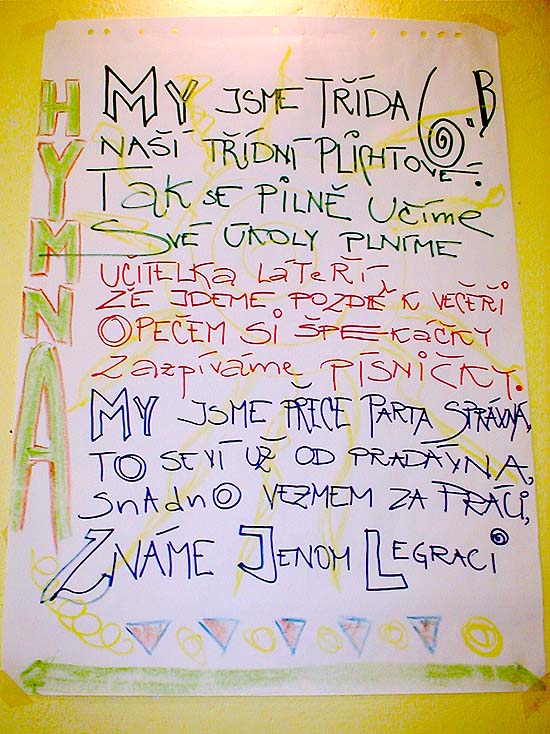 HYMNA
MY JSME TŘÍDA 6.B
NAŠÍ TŘÍDNÍ PLICHTOVÉ.
TAK SE PILNĚ UČÍME
SVÉ ÚKOLY PLNÍME
UČITELKA LÁTEŘÍ
ŽE JDEME POZDĚ K VEČEŘI
OPEČEM SI ŠPEKÁČKY
ZAZPÍVÁME PÍSNIČKY.
MY JSME PŘECE PARTA SPRÁVNÁ,
TO SE VÍ UŽ OD PRADÁVNA,
SNADNO VEZMEM ZA PRÁCI,
ZNÁME JENOM LEGRACI